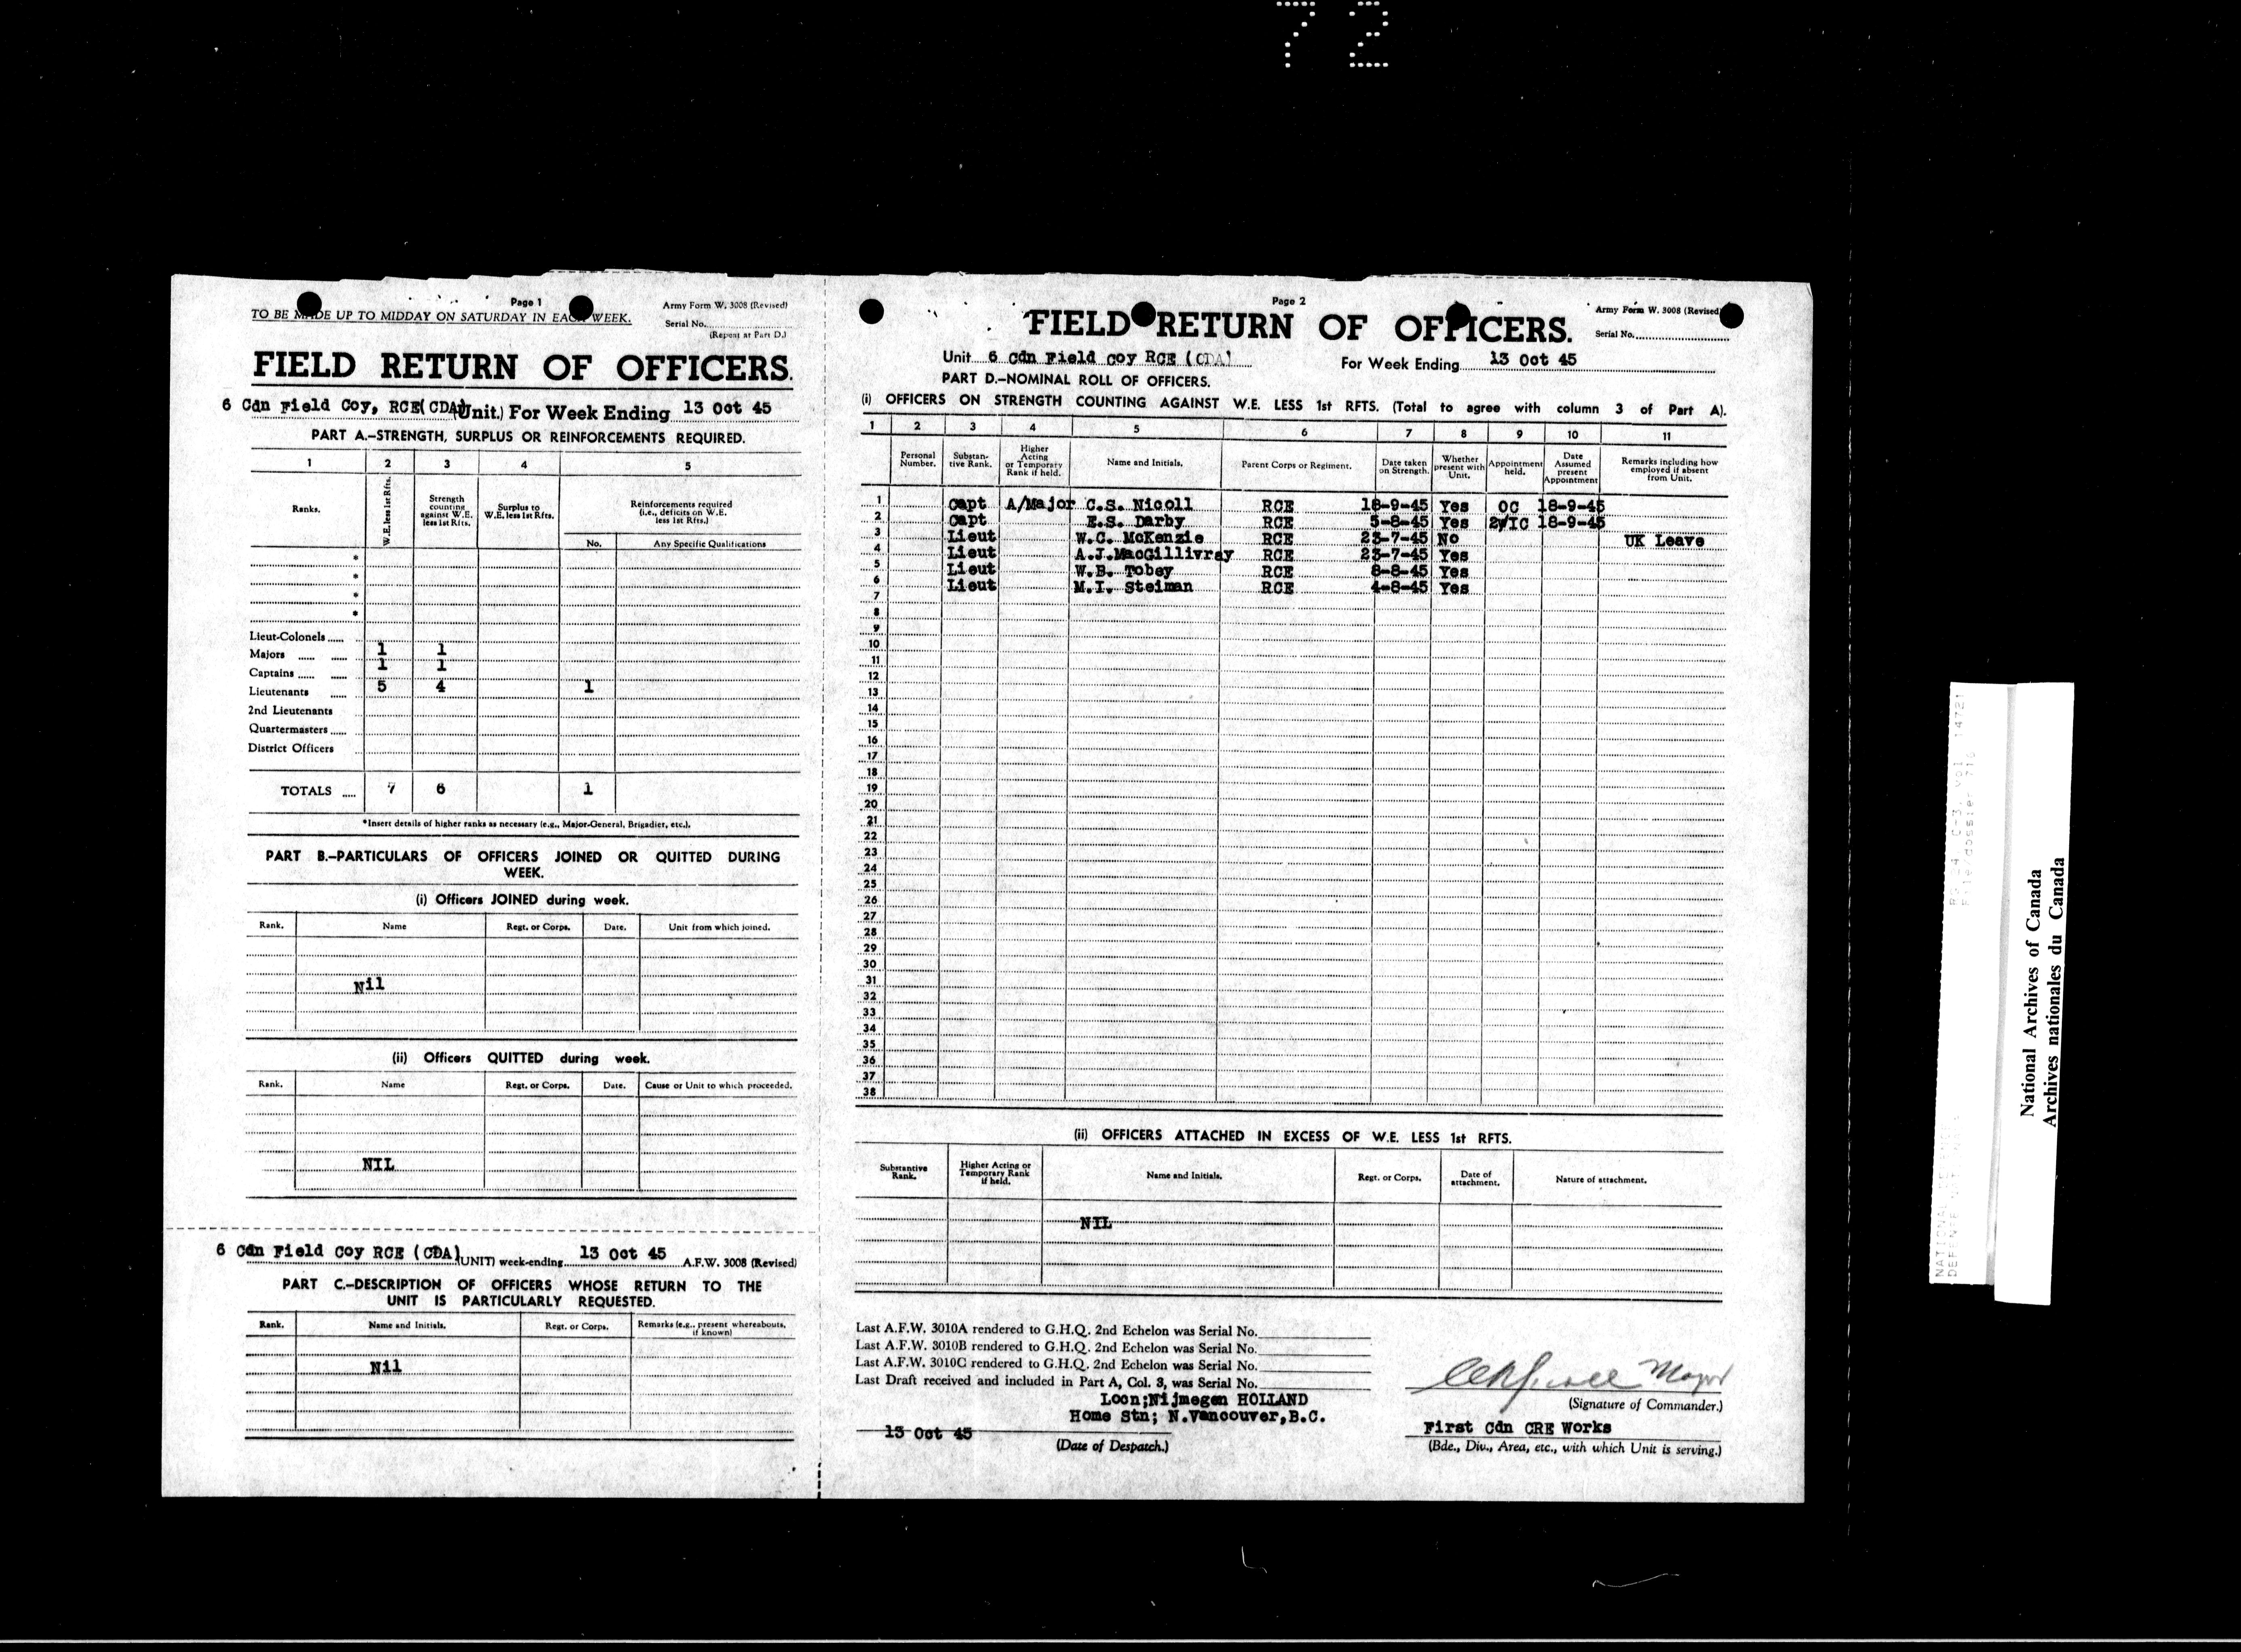 72
Page 1
TO BE MADE UP TO MIDDAY ON SATURDAY IN EACH WEEK.
Army Form W. 3008 (Revised)
Serial No.
(Repeat at Part D.)
FIELD RETURN OF OFFICERS.
6 Cdn Field Coy, RCE(CDA) (Unit.) For Week Ending 13 Oct 45
PART A.-STRENGTH, SURPLUS OR REINFORCEMENTS REQUIRED.
1 2 3 4 5
Ranks. W.E. less 1st Rfts. Strength counting against W.E. less 1st Rfts. Surplus to W.E. less 1st Rfts. Reinforcements required (i.e., deficits on W.E. less 1st Rfts.)
No. Any Specific Qualifications
*
*
*
*
Lieut-Colonels
Majors 1 1
Captains 1 1
Lieutenants 5 4 1
2nd Lieutenants
Quartermasters
District Officers
TOTALS 7 6 1
*Insert details of higher ranks as necessary (e.g., Major-General, Brigadier, etc.).
PART B.-PARTICULARS OF OFFICERS JOINED OR QUITTED DURING
WEEK.
(i) Officers JOINED during week.
Rank. Name Regt. or Corps. Date. Unit from which joined.
Nil
(ii) Officers QUITTED during week.
Rank. Name Regt. or Corps. Date. Cause or Unit to which proceeded.
NIL
6 Cdn Field Coy RCE (CDA) (UNIT) week-ending 13 Oct 45 A.F.W. 3008 (Revised)
PART C.-DESCRIPTION OF OFFICERS WHOSE RETURN TO THE
UNIT IS PARTICULARLY REQUESTED.
Rank. Name and Initials. Regt. or Corps. Remarks (e.g., present whereabouts, if known)
Nil
Page 2
Army Form W. 3008 (Revised)
FIELD RETURN OF OFFICERS.
Serial No.
Unit 6 Cdn Field Coy RCE (CDA) For Week Ending 13 Oct 45
PART D.-NOMINAL ROLL OF OFFICERS.
(i) OFFICERS ON STRENGTH COUNTING AGAINST W.E. LESS 1st RFTS. (Total to agree with column 3 of Part A).
1 2 3 4 5 6 7 8 9 10 11
Personal Number. Substantive Rank. Higher Acting or Temporary Rank if held. Name and Initials. Parent Corps or Regiment. Date taken on Strength. Whether present with Unit. Appointment held. Date Assumed present Appointment Remarks including how employed if absent from Unit.
1 Capt A/Major C.S. Nicoll RCE 18-9-45 Yes OC 18-9-45
2 Capt E.S. Darby RCE 5-8-45 Yes 2/IC 18-9-45
3 Lieut W.C. McKenzie RCE 23-7-45 No UK Leave
4 Lieut A.J.MacGillivray RCE 23-7-45 Yes
5 Lieut W.B. Tobey RCE 8-8-45 Yes
6 Lieut M.I. Steiman RCE 4-8-45 Yes
7
8
9
10
11
12
13
14
15
16
17
18
19
20
21
22
23
24
25
26
27
28
29
30
31
32
33
34
35
36
37
38
(ii) OFFICERS ATTACHED IN EXCESS OF W.E. LESS 1st RFTS.
Substantive Rank. Higher Acting or Temporary Rank if held. Name and Initials. Regt. or Corps. Date of attachment. Nature of attachment.
NIL
Last A.F.W. 3010A rendered to G.H.Q. 2nd Echelon was Serial No.
Last A.F.W. 3010B rendered to G.H.Q. 2nd Echelon was Serial No.
Last A.F.W. 3010C rendered to G.H.Q. 2nd Echelon was Serial No.
Last Draft received and included in Part A, Col. 3, was Serial No.
Major
(Signature of Commander.)
Locn;Nijmegen HOLLAND
Home Stn; N.Vancouver,B.C.
13 Oct 45
(Date of Despatch.)
First Cdn CRE Works
(Bde., Div., Area, etc., with which Unit is serving.)
National Archives of Canada
Archives nationales du Canada